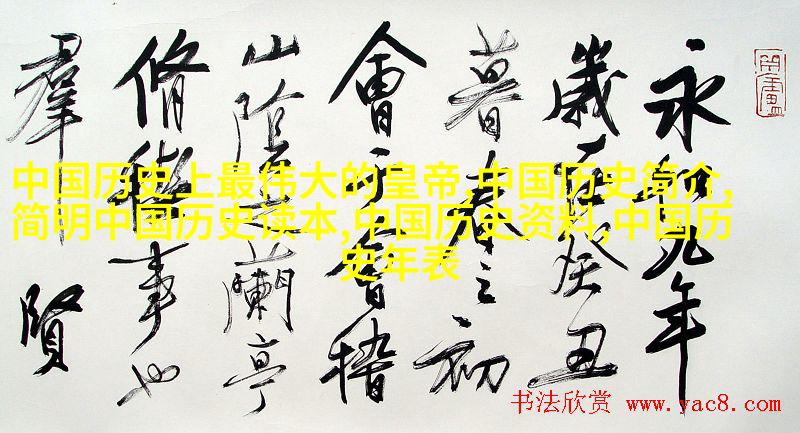 永和九年
歲在癸丑
暮春之初
會于會稽
山陰之蘭亭
脩禊事也
羣賢
中国历史上最伟大的皇帝,中国历史简介,
简明中国历史读本,中国历史资料,中国历
史年表
书法欣赏 www.yac8.com